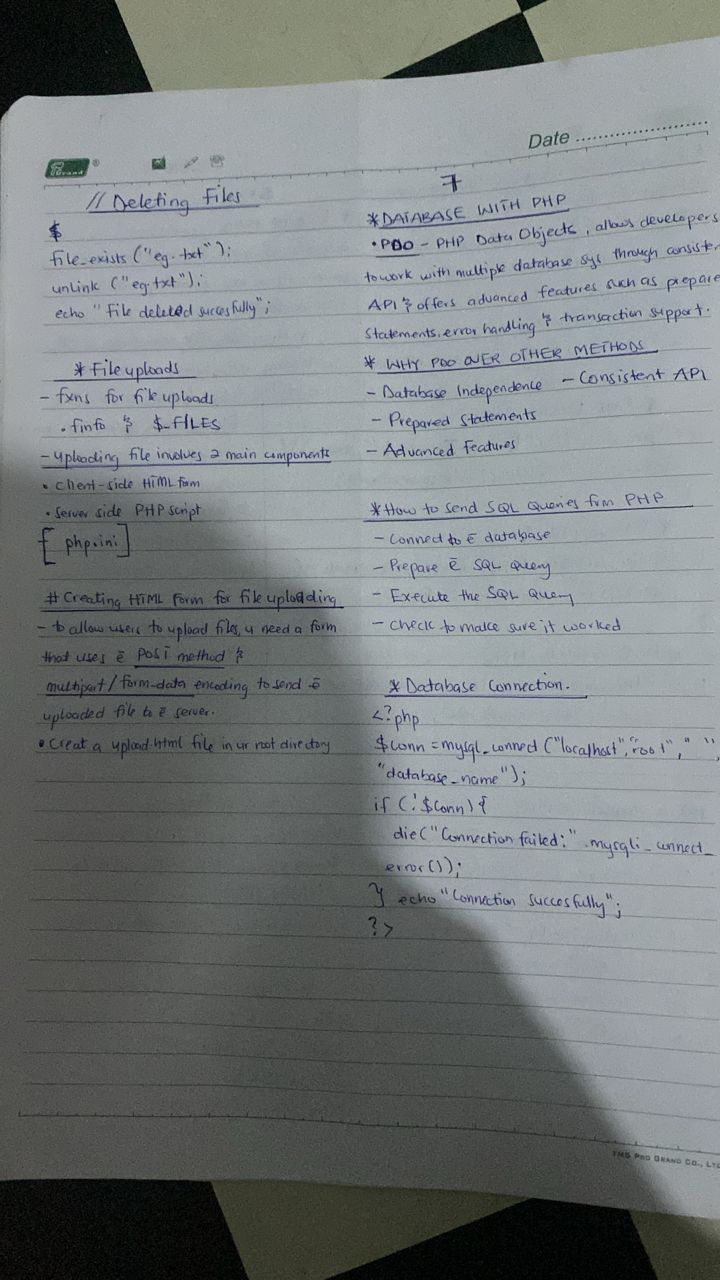 Date
// Deleting Files
$
file_exists ("eg.txt");
unlink ("eg.txt");
echo "File deleted succesfully";
* File uploads
- fxns for file uploads
. finfo & $_FILES
- uploading file involves 2 main components
• client-side HTML form
• server side PHP script
[php.ini]
# Creating HTML Form for file uploading
- to allow users to upload files, u need a form
that uses ē POST method &
multipart/form-data encoding to send ē
uploaded file to ē server.
• Creat a upload.html file in ur root directory
7
* DATABASE WITH PHP
• PDO - PHP Data Objects, allows developers
to work with multiple database sys through consisten
API & offers advanced features such as prepare
Statements, error handling & transaction support.
* WHY PDO OVER OTHER METHODS
- Database Independence - Consistent API
- Prepared Statements
- Advanced Features
* How to send SQL Queries frm PHP
- Connect to ē database
- Prepare ē SQL query
- Execute the SQL Query
- check to make sure it worked
* Database Connection.
<?php
$conn = mysql_connect ("localhost", "root", " ",
"database_name");
if (!$conn) {
die("Connection failed:" .mysqli_connect_
error());
} echo "Connection succesfully";
?>
TMS PRO GRAND CO., LTD